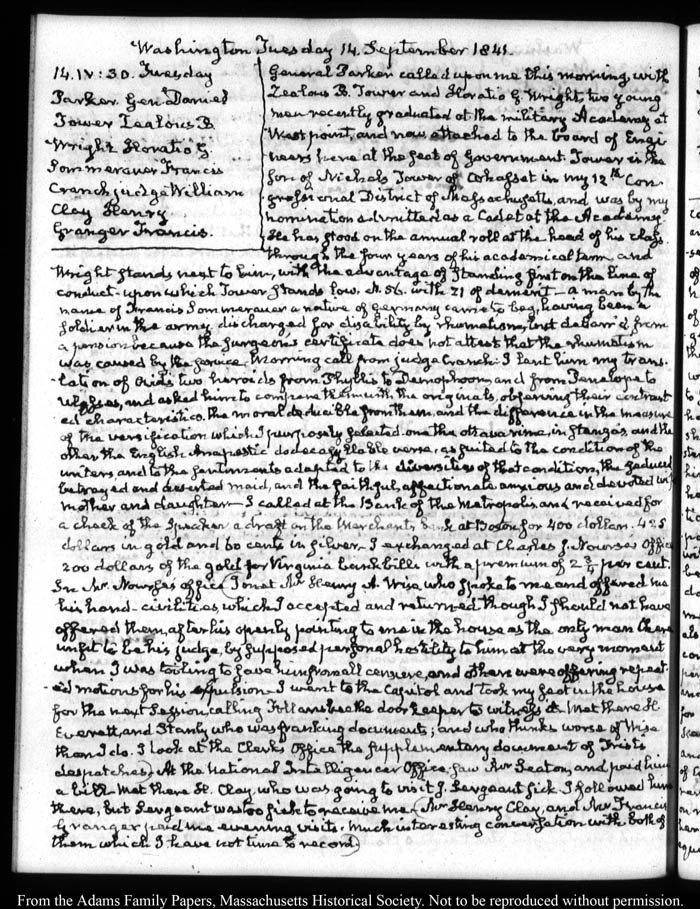 Washington Tuesday 14. September 1841.
14. IV: 30. Tuesday
Parker. Gen. Daniel
Tower Zealous B.
Wright Horatio G.
Sommerauer Francis
Cranch judge William
Clay Henry
Granger Francis.
General Parker called upon me this morning, with
Zealous B. Tower and Horatio G Wright, two young
men recently graduated at the military Academy at
West point, and now attached to the board of Engi-
neers here at the seat of Government. Tower is the
son of Nichols Tower of Cohasset in my 12th Con-
gressional District of Massachusetts, and was by my
nomination admitted as a Cadet at the Academy.
He has stood on the annual roll at the head of his class
through the four years of his academical term and
Wright stands next to him, with the advantage of standing first on the line of
conduct - upon which Tower stands low. N. 56. with 21 of demerit - a man by the
name of Francis Sommerauer a native of Germany came to beg, having been a
soldier in the army, discharged for disability by rhumatism, but debarr'd from
a pension because the surgeons certificate does not attest that the rhumatism
was caused by the service. Morning call from judge Cranch. I lent him my trans-
lation of Ovids two heroids from Phyllis to Demophoon, and from Penelope to
Ulysses, and asked him to compare them with the originals, observing their contrast-
ed characteristics. the moral deducible from them, and the difference in the measure
of the versification which I purposely selected. one the ottava rime, in stanza's, and the
other the English Anapestic dodecasyllable verse, as suited to the condition of the
writers, and to the sentiments adapted to the diversities of that condition, the seduced
betrayed and deserted maid, and the faithful, affectionate anxious and devoted
mother and daughter - I called at the Bank of the Metropolis, and received for
a check of the Speaker a draft on the Merchants Bank at Boston for 400 dollars. 425
dollars in gold and 60 cents in silver - I exchanged at Charles J. Nourse's Office
200 dollars of the gold for Virginia bank bills with a premium of 2 per cent.
In Mr. Nourse's office I met Mr Henry A. Wise, who spoke to me and offered me
his hand - civilities, which I accepted and returned though I should not have
offered them, after his openly pointing to me in the house as the only man there
unfit to be his judge, by supposed personal hostility to him at the very moment
when I was toiling to save him from all censure, and others were offering repeat-
ed motions for his expulsion - I went to the Capitol and took my seat in the house
for the next Session, calling Follansbee the door keeper to witness it. Met there H.
Everett, and Stanly who was franking documents; and who thinks worse of Wise
than I do. I look at the Clerks Office the supplementary document of Trists
despatches. At the National Intelligencer Office, saw Mr Seaton, and paid him
a bill. Met there H. Clay, who was going to visit J. Sergeant sick. I followed him
there, but Sergeant was too sick to receive me. Mr Henry Clay, and Mr Francis
Granger paid me evening visits. Much interesting conversation with both of
them which I have not time to record.
From the Adams Family Papers, Massachusetts Historical Society. Not to be reproduced without permission.